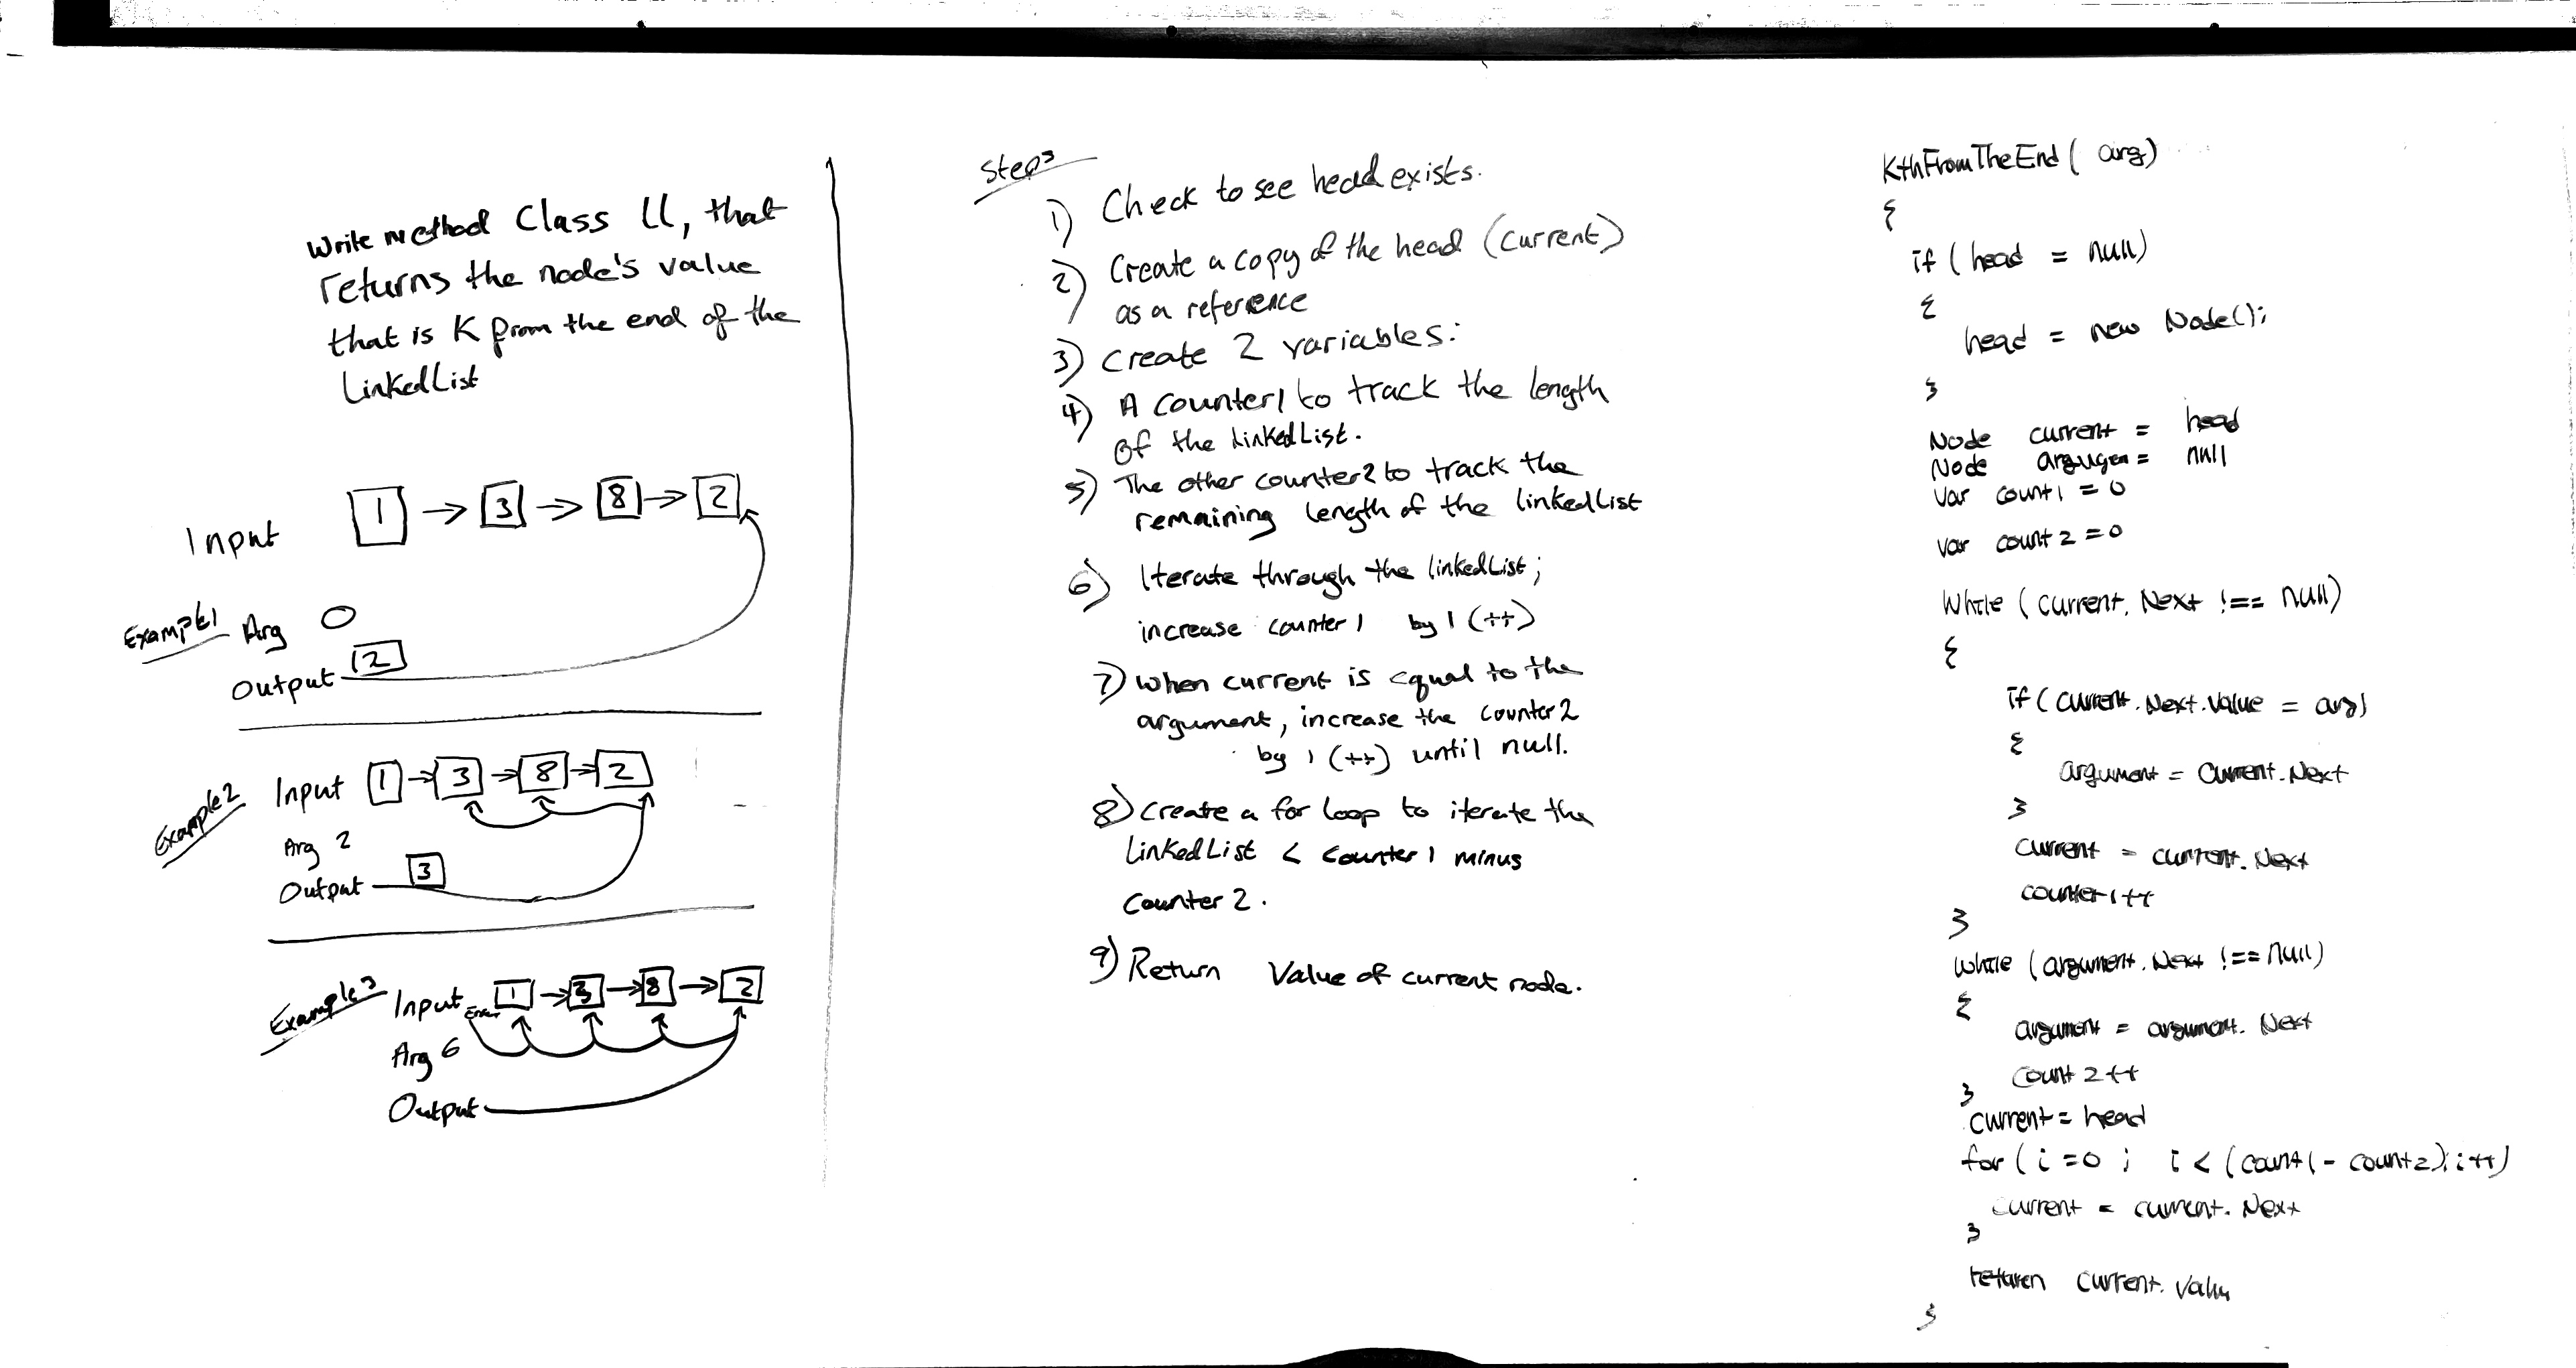 Write method Class LL, that
returns the node's value
that is K from the end of the
LinkedList
Input 1 → 3 → 8 → 2
Example1 Arg 0
Output 2
Example2 Input 1 → 3 → 8 → 2
Arg 2
Output 3
Example3 Input 1 → 3 → 8 → 2
Arg 6
Output
Steps
1) Check to see head exists.
2) Create a copy of the head (current)
as a reference
3) Create 2 variables:
4) A counter1 to track the length
of the linkedList.
5) The other counter2 to track the
remaining length of the linkedList
6) Iterate through the linkedList;
increase counter 1 by 1 (++)
7) When current is equal to the
argument, increase the counter2
by 1 (++) until null.
8) Create a for loop to iterate the
LinkedList < counter1 minus
Counter 2.
9) Return Value of current node.
KthFromTheEnd( arg)
{
if ( head = null)
{
head = new Node();
}
Node current = head
Node = null
var count1 = 0
var count2 = 0
While ( current. Next !== null)
{
if ( current.Next.value = arg)
{
argument = current.Next
}
current = current.Next
counter1++
}
while (argument.Next !== null)
{
argument = argument. Next
count 2++
}
current = head
for ( i = 0 ; i < (count1 - count2); i++)
current = current. Next
}
return current. value
}